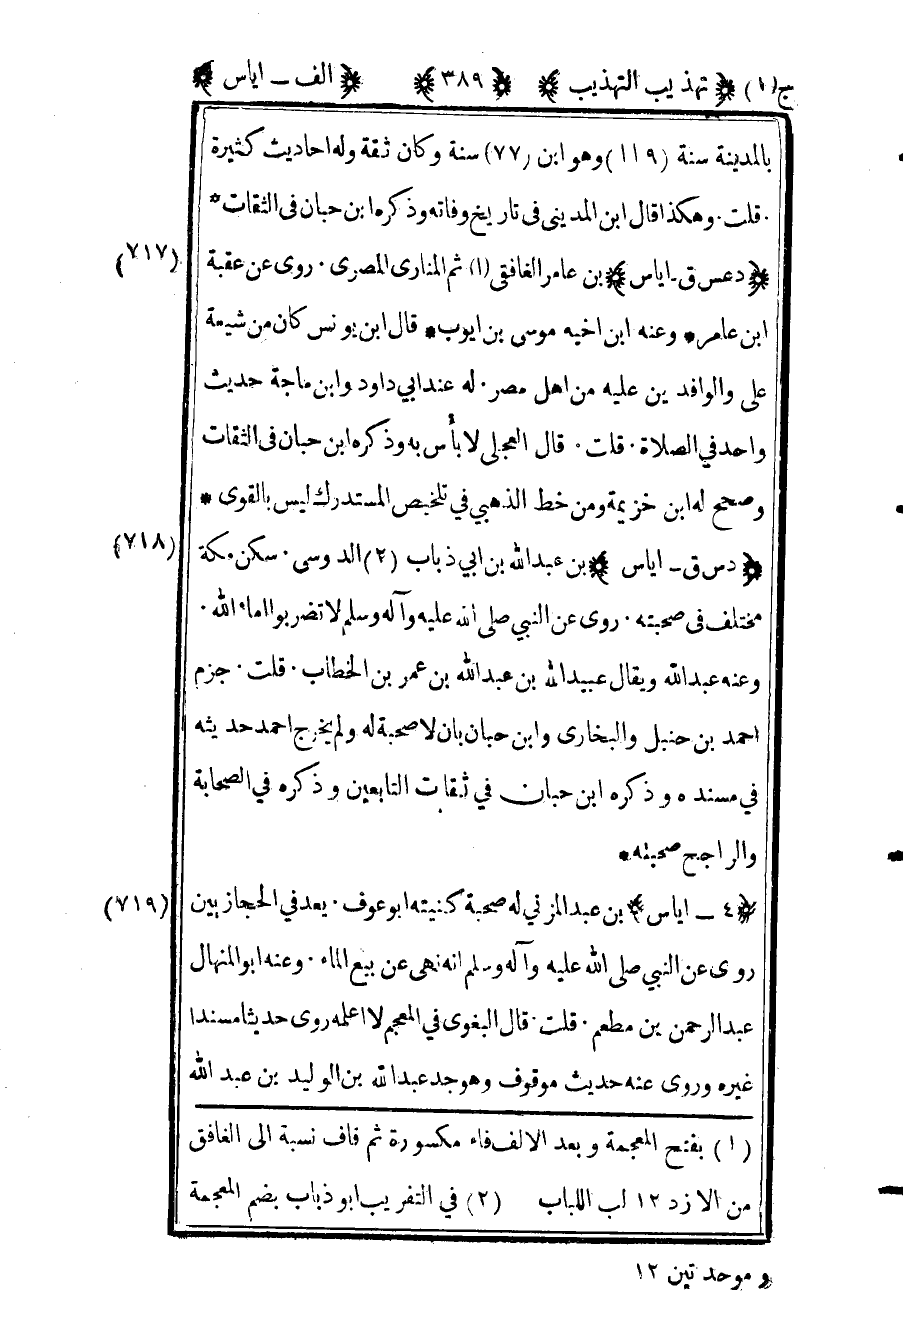 ج(١) ﴿تهذيب التهذيب﴾ ﴿٣٨٩﴾ ﴿الف - اياس﴾
بالمدينة سنة (١١٩) وهو ابن (٧٧) سنة وكان ثقة وله احاديث كثيرة
· قلت · وهكذا قال ابن المديني فى تاريخ وفاته وذكره ابن حبان فى الثقات *
(٧١٧) ﴿دعس ق - اياس﴾ بن عامر الغافقى (١) ثم المنارى المصرى · روى عن عقبة
ابن عامر * وعنه ابن اخيه موسى بن ايوب * قال ابن يونس كان من شيعة
على والوافدين عليه من اهل مصر · له عند ابي داود وابن ماجة حديث
واحد في الصلاة · قلت · قال العجلى لا بأس به وذكره ابن حبان فى الثقات
وصحح له ابن خزيمة ومن خط الذهبي في تلخيص المستدرك ليس بالقوى *
(٧١٨) ﴿دس ق - اياس﴾ بن عبدالله بن ابي ذباب (٢) الدوسى · سكن مكة
مختلف فى صحبته · روى عن النبي صلى الله عليه وآله وسلم لا تضربوا اماء الله ·
وعنه عبدالله ويقال عبيدالله بن عبدالله بن عمر بن الخطاب · قلت · جزم
احمد بن حنبل والبخارى وابن حبان بان لا صحبة له ولم يخرج احمد حديثه
في مسنده وذكره ابن حبان في ثقات التابعين وذكره في الصحابة
والراجح صحبته *
(٧١٩) ﴿٤ - اياس﴾ بن عبد المزني له صحبة كنيته ابو عوف · يعد في الحجازيين
روى عن النبي صلى الله عليه وآله وسلم انه نهى عن بيع الماء · وعنه ابو المنهال
عبدالرحمن بن مطعم · قلت · قال البغوى في المعجم لا اعلمه روى حديثا مسندا
غيره وروى عنه حديث موقوف وهو جد عبدالله بن الوليد بن عبد الله
(١) بفتح المعجمة وبعد الالف فاء مكسورة ثم قاف نسبة الى الغافق
من الازد ١٢ لب اللباب (٢) في التقريب ابو ذباب بضم المعجمة
وموحدتين ١٢